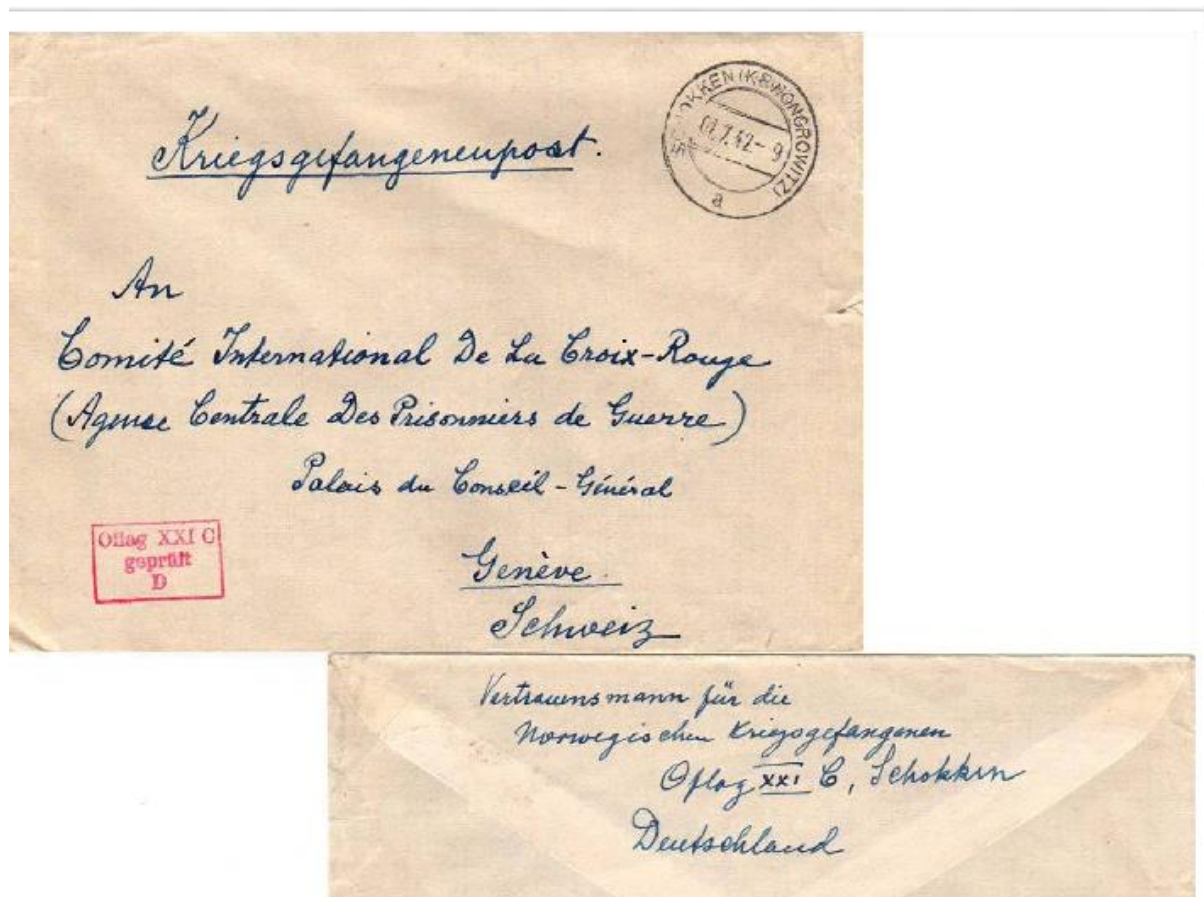 Kriegsgefangenenpost.
SCHOKKEN (KR WONGROWITZ)
7.42-9
a
An
Comité International De La Croix-Rouge
(Agence Centrale Des Prisonniers de Guerre)
Palais du Conseil-Général
Oflag XXI C
geprüft
D
Genève.
Schweiz
Vertrauensmann für die
Norwegischen Kriegsgefangenen
Oflag XXI C, Schokken
Deutschland